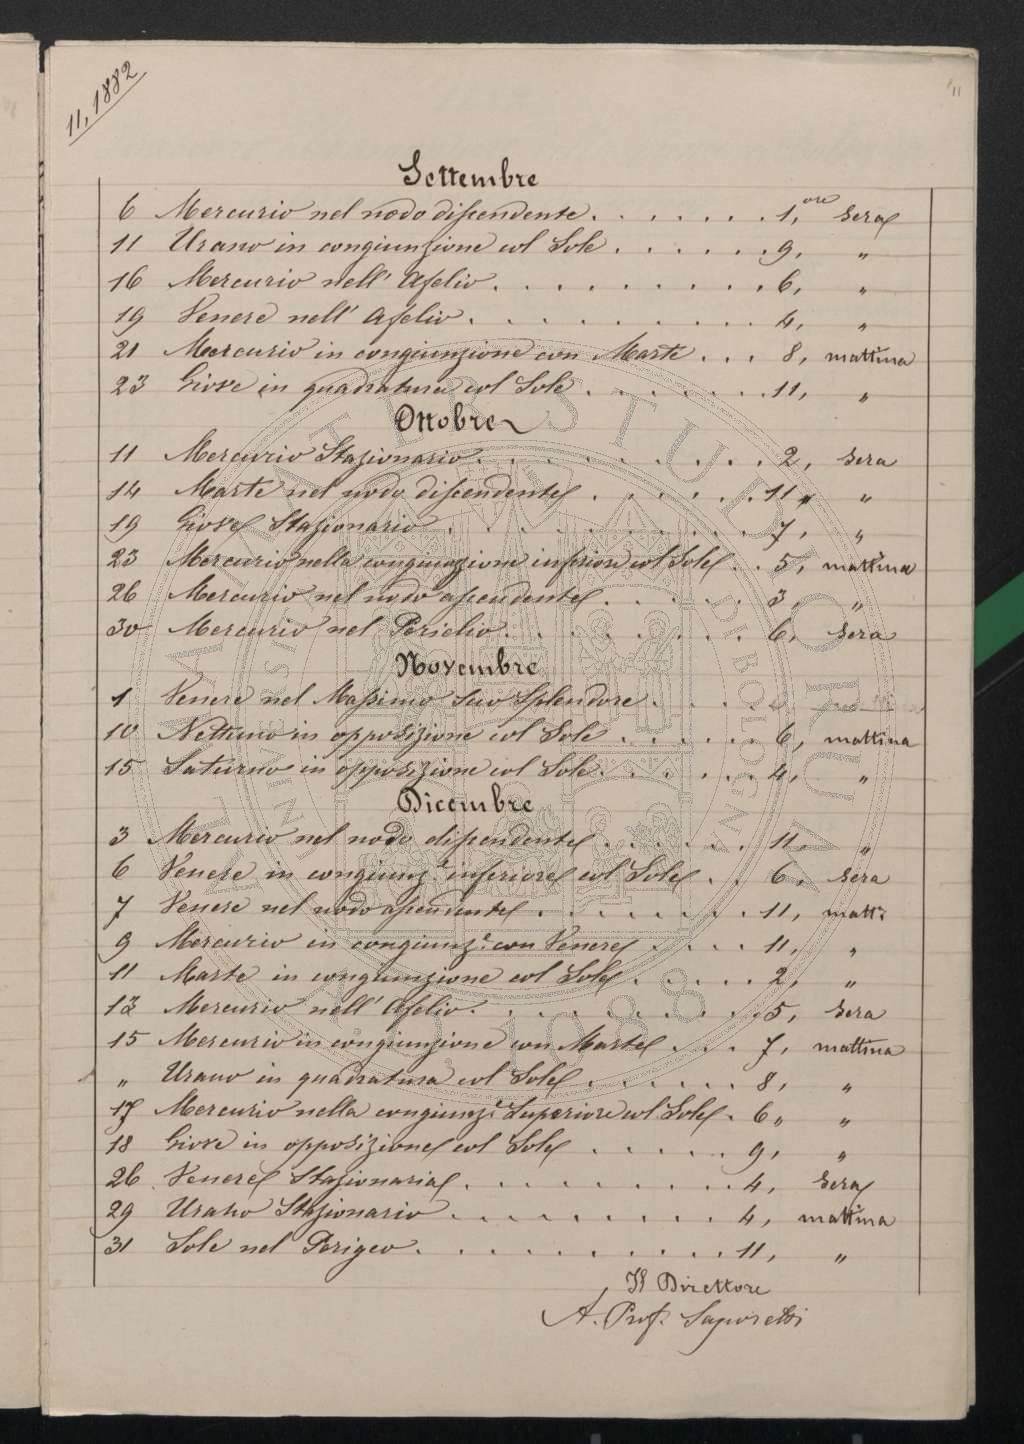 11, 1882
11
Settembre
6 Mercurio nel nodo discendente . . . . . . . 1, ore sera
11 Urano in congiunzione col Sole . . . . . . 9, "
16 Mercurio nell' Afelio . . . . . . . . . . 6, "
19 Venere nell' Afelio . . . . . . . . . . 4, "
21 Mercurio in congiunzione con Marte . . . 8, mattina
23 Giove in quadratura col Sole . . . . . . . 11, "
Ottobre
11 Mercurio Stazionario . . . . . . . . . . 2, sera
14 Marte nel nodo discendente . . . . . . . 11, "
19 Giove Stazionario . . . . . . . . . . 7, "
23 Mercurio nella congiunzione inferiore col Sole . . 5, mattina
26 Mercurio nel nodo ascendente . . . . . . 3, "
30 Mercurio nel Perielio . . . . . . . . . 6, sera
Novembre
1 Venere nel Massimo suo Splendore . . . . .
10 Nettuno in opposizione col Sole . . . . . . 6, mattina
15 Saturno in opposizione col Sole . . . . . . . 4, "
Dicembre
3 Mercurio nel nodo discendente . . . . . . 11, "
6 Venere in congiunz.e inferiore col Sole . . 6, sera
7 Venere nel nodo ascendente . . . . . . . . 11, matt.
9 Mercurio in congiunz.e con Venere . . . . 11, "
11 Marte in congiunzione col Sole . . . . . 2, "
12 Mercurio nell' Afelio . . . . . . . . . . 5, sera
15 Mercurio in congiunzione con Marte . . . 7, mattina
" Urano in quadratura col Sole . . . . . . 8, "
17 Mercurio nella congiunz.e Superiore col Sole . 6 " "
18 Giove in opposizione col Sole . . . . . . 9, "
26 Venere Stazionaria . . . . . . . . . . 4, sera
29 Urano Stazionario . . . . . . . . . . 4, mattina
31 Sole nel Perigeo . . . . . . . . . . . 11, "
Il Direttore
A. Prof. Saporetti
ALMA MATER STUDIORUM
UNIVERSITÀ DI BOLOGNA
A.D. 1088